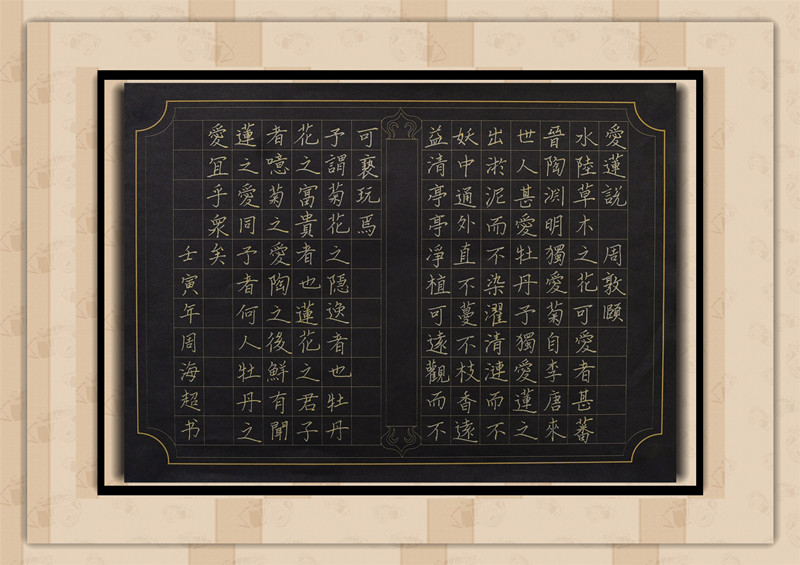 愛蓮説 周敦頤
水陸草木之花可愛者甚蕃
晉陶淵明獨愛菊自李唐來
世人甚愛牡丹予獨愛蓮之
出淤泥而不染濯清漣而不
妖中通外直不蔓不枝香遠
益清亭亭凈植可遠觀而不
可褻玩焉
予謂菊花之隱逸者也牡丹
花之富貴者也蓮花之君子
者噫菊之愛陶之後鮮有聞
蓮之愛同予者何人牡丹之
愛冝乎衆矣
壬寅年周海超书